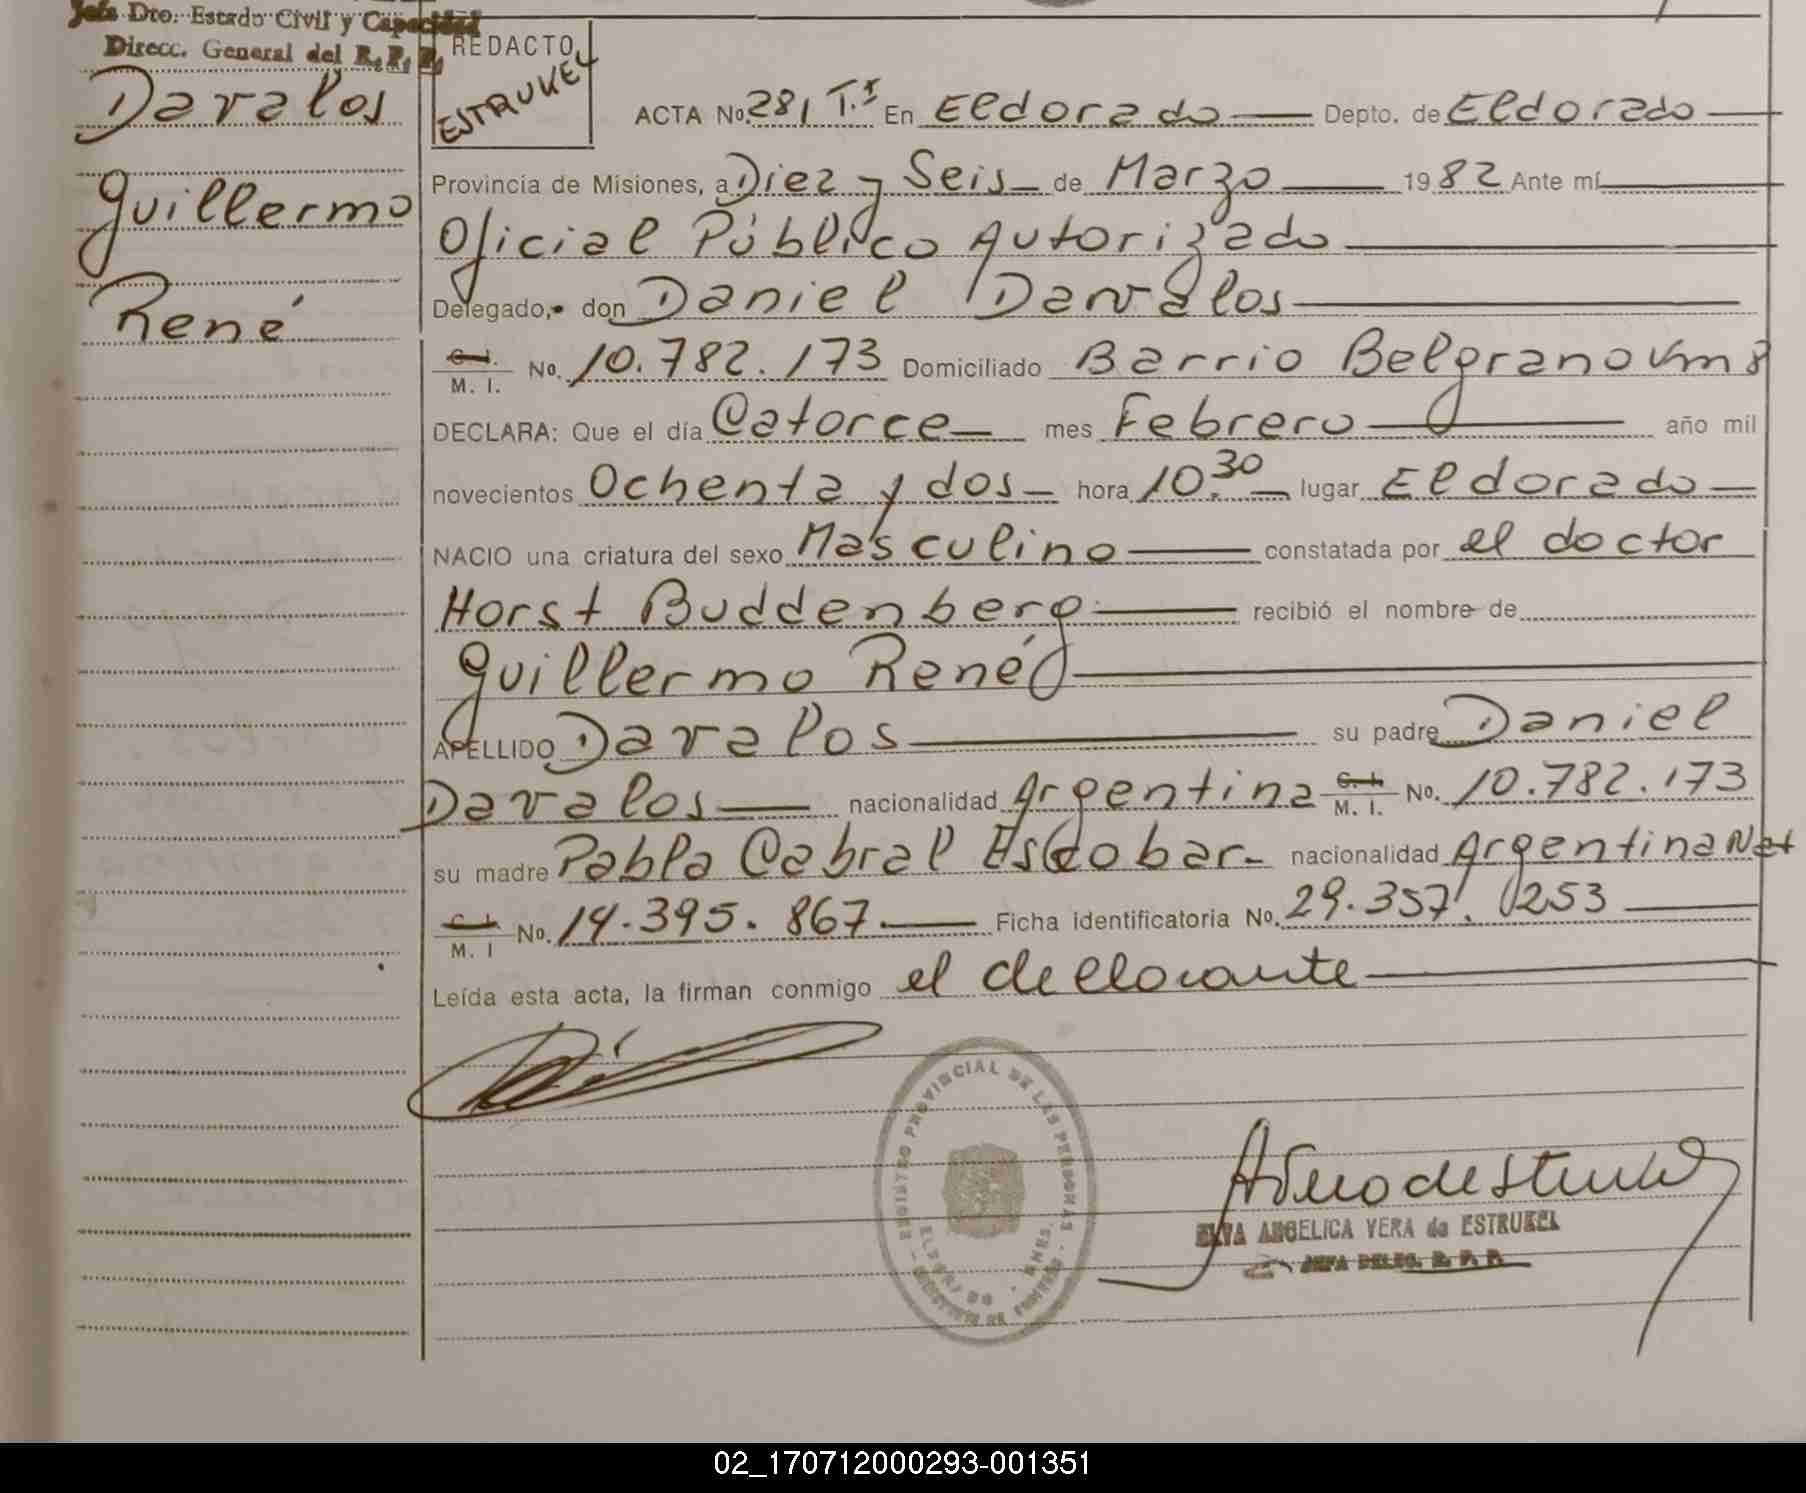 Jefa Dto. Estado Civil y Capacidad
Direcc. General del R. P. P.
REDACTO
ESTRUKEL
Davalos
Guillermo
René
ACTA No. 281 T.I En Eldorado Depto. de Eldorado
Provincia de Misiones, a Diez y Seis de Marzo 1982 Ante mí
Oficial Público Autorizado
Delegado, don Daniel Davalos
C. I. M. I. No. 10.782.173 Domiciliado Barrio Belgrano Km 8
DECLARA: Que el día Catorce mes Febrero año mil
novecientos Ochenta y dos hora 10.30 lugar Eldorado
NACIO una criatura del sexo Masculino constatada por el doctor
Horst Buddenberg recibió el nombre de
Guillermo René
APELLIDO Davalos su padre Daniel
Davalos nacionalidad Argentina C. I. M. I. No. 10.782.173
su madre Pabla Cabral Escobar nacionalidad Argentina Nat
C. I. M. I No. 14.395.867. Ficha identificatoria No. 29.357.253
Leída esta acta, la firman conmigo el declarante
REGISTRO PROVINCIAL DE LAS PERSONAS
ELVA ANGELICA VERA de ESTRUKEL
JEFA DELEG. R. P. P.
02_170712000293-001351